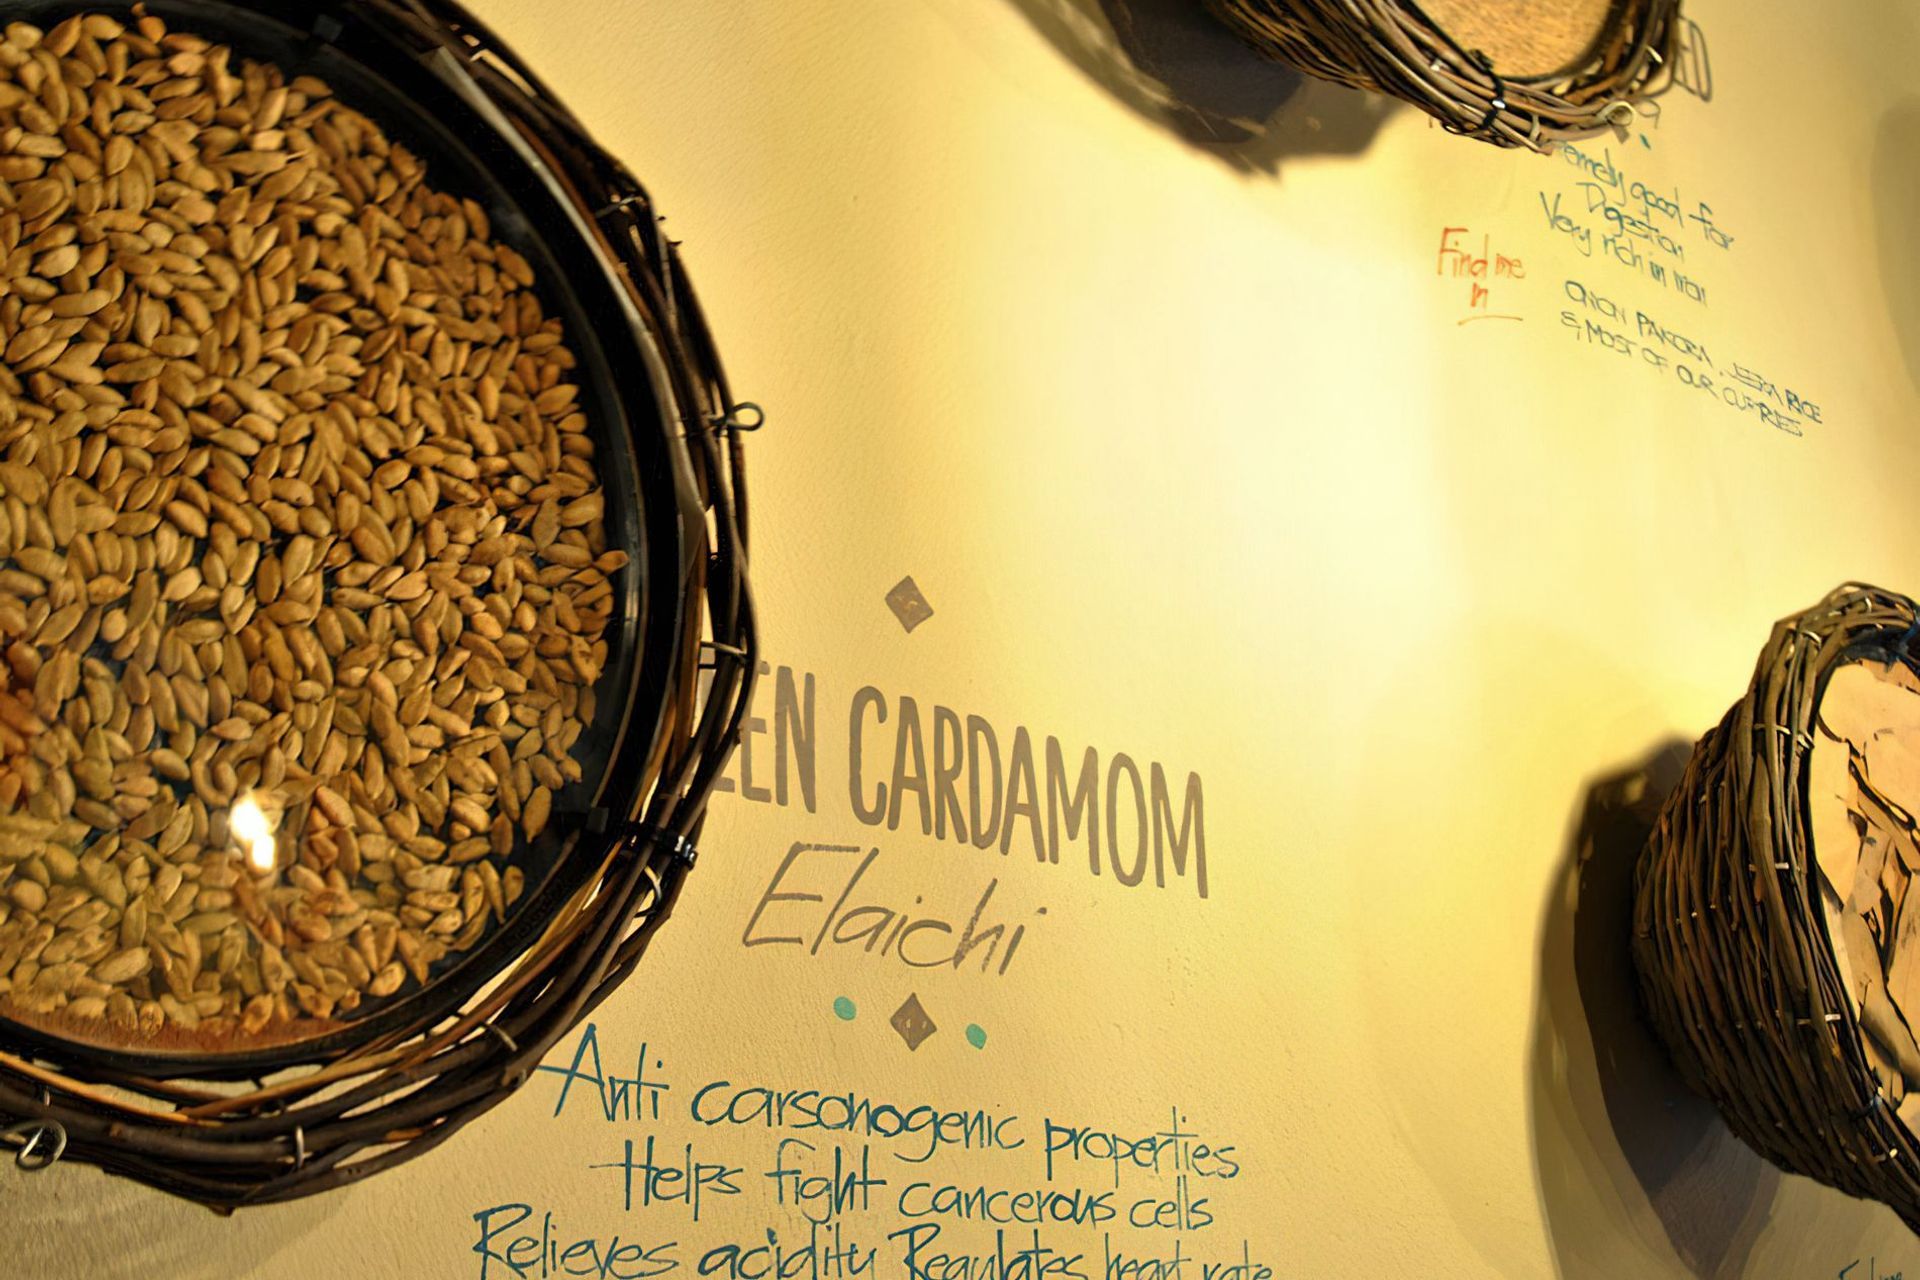 EEN CARDAMOM
Elaichi
Anti carsonogenic properties
Helps fight cancerous cells
Relieves acidity Regulates heart rate
good for
Digestion
Very rich in iron
Find me
in
ONION PAKORA, JEERA RICE
& MOST OF OUR CURRIES